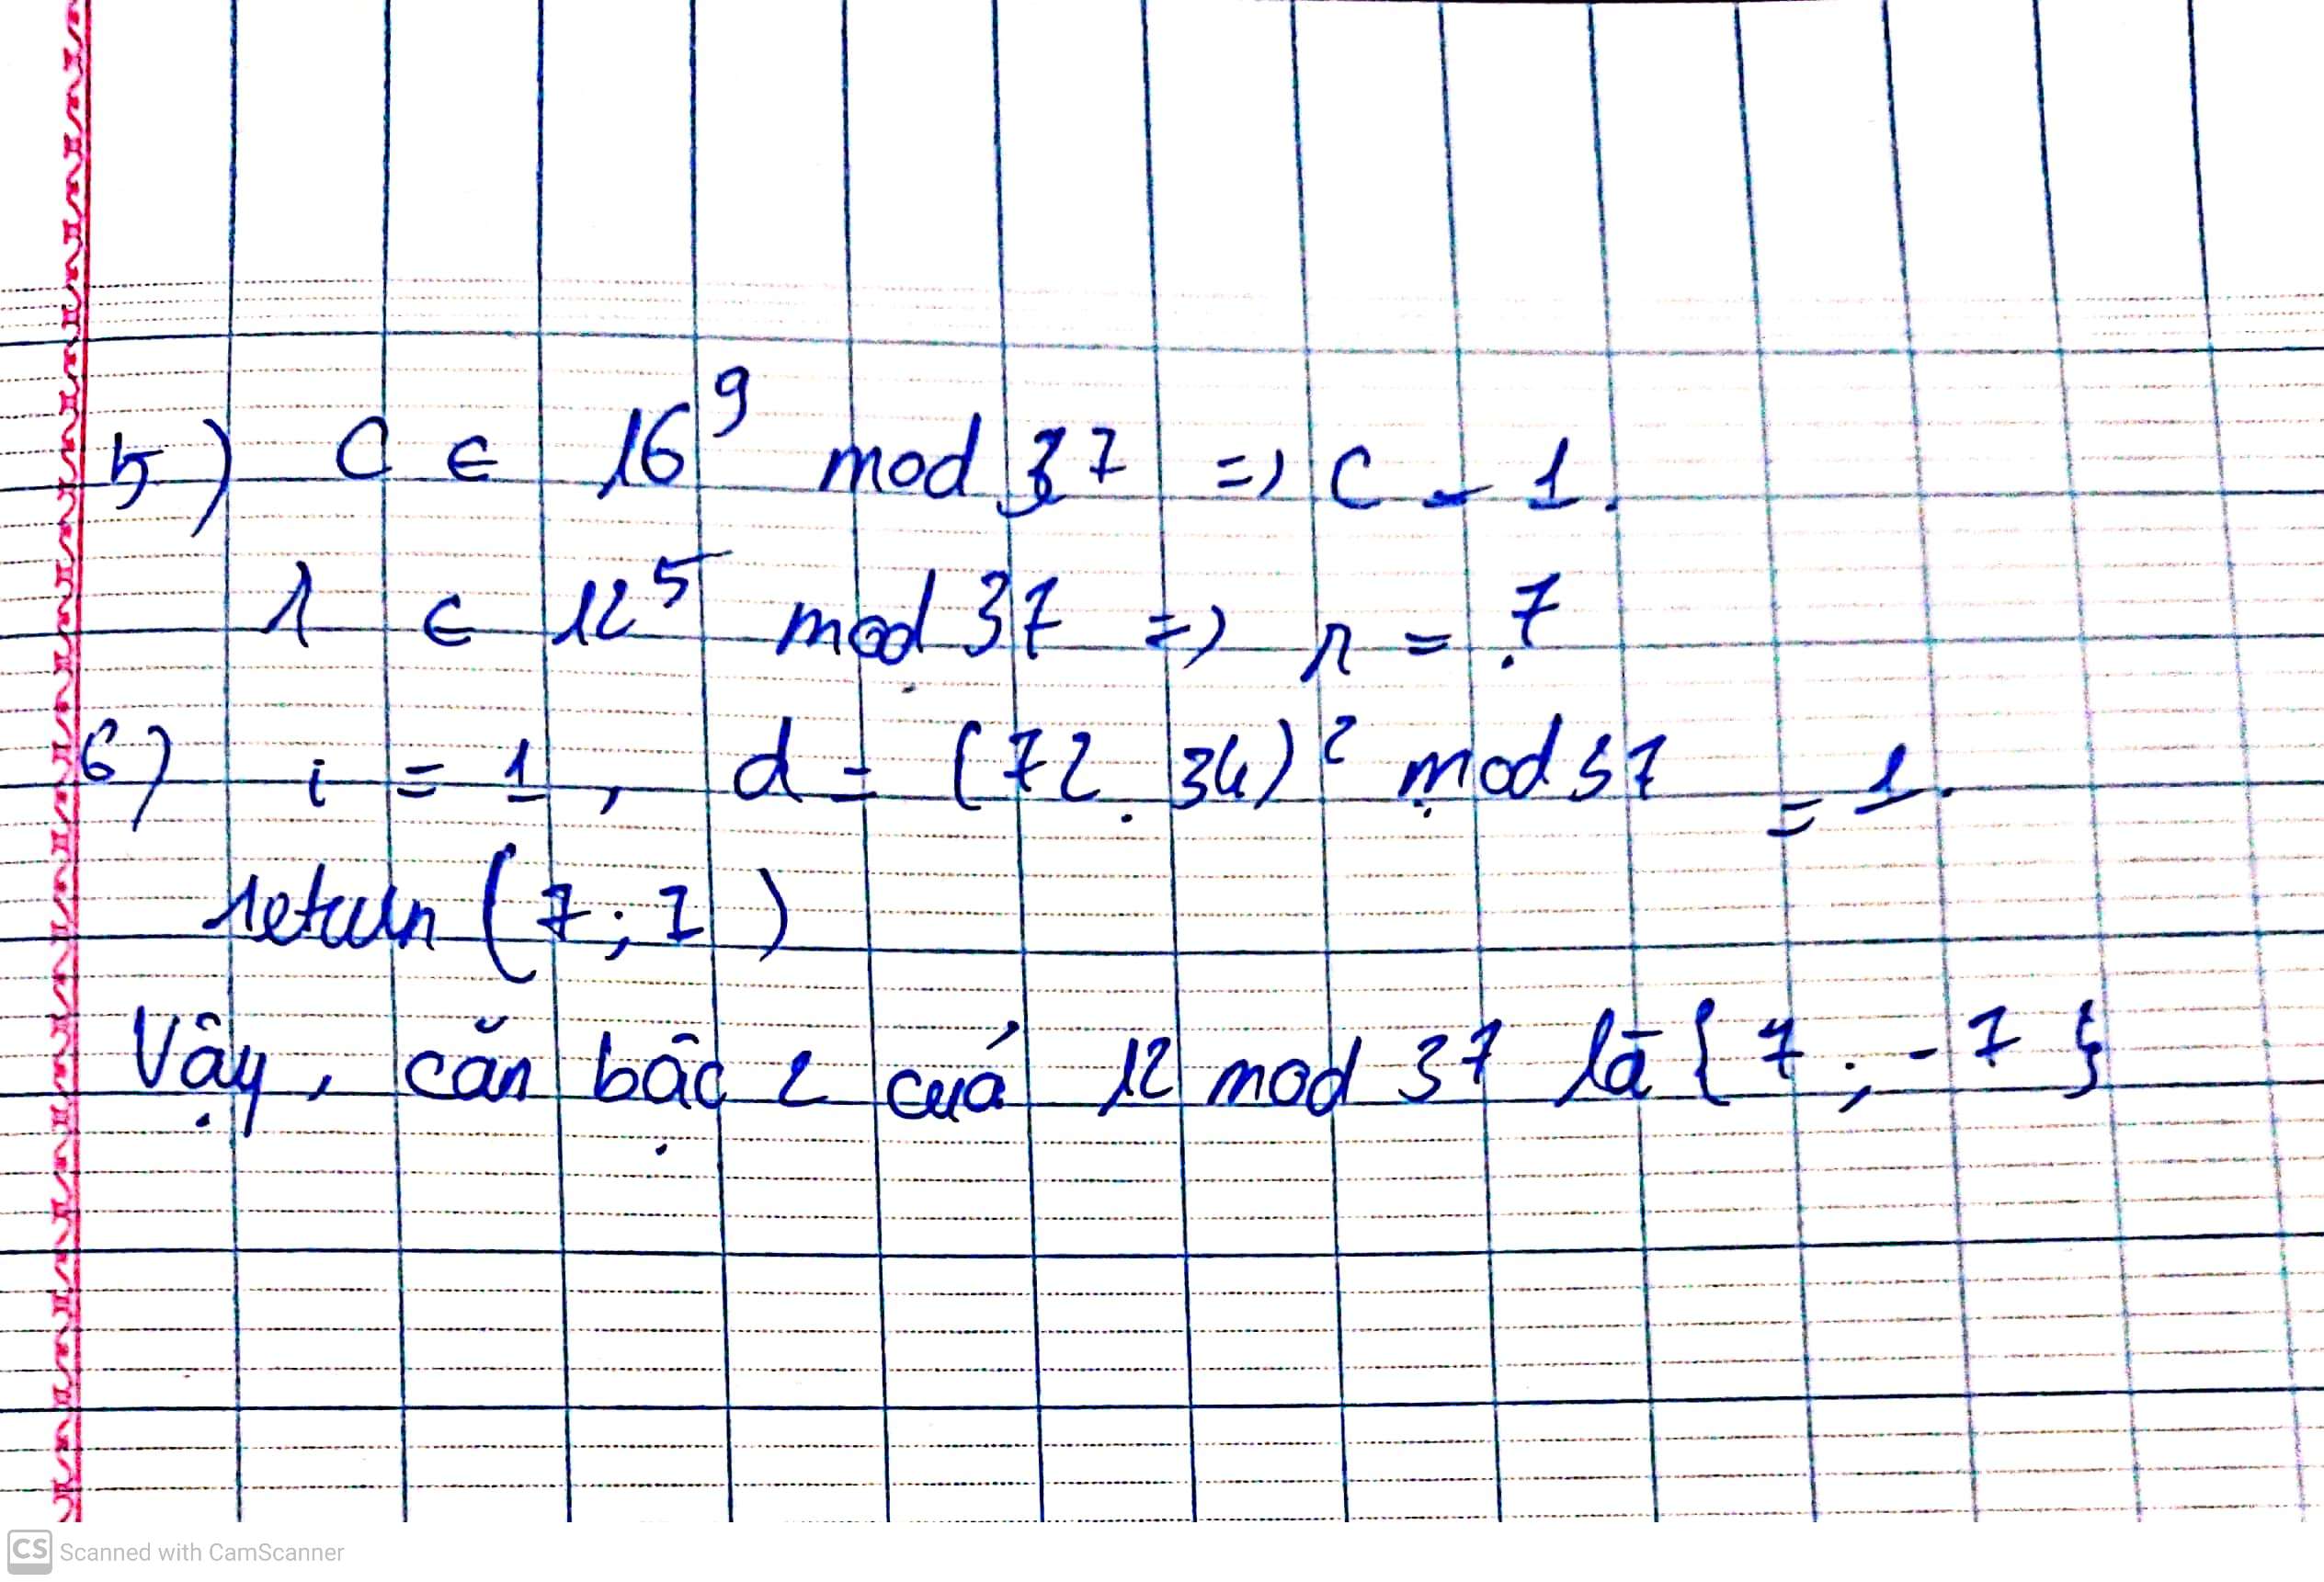 5) C ∈ 16⁹ mod 37 => C = 1.
r ∈ 12⁵ mod 37 => r = 7
6) i = 1, d = (72.34)² mod 37 = 1.
return (7; 7)
Vậy, căn bậc 2 của 12 mod 37 là {7; -7}
CS Scanned with CamScanner